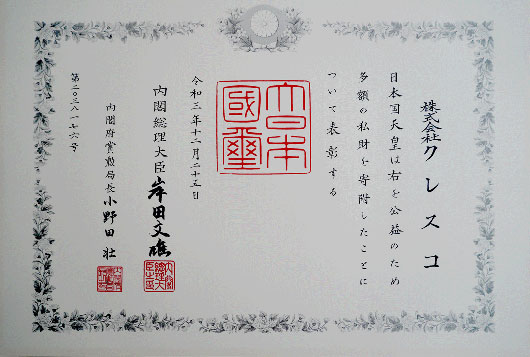 株式会社クレスコ
日本国天皇は右を公益のため
多額の私財を寄附したことに
ついて表彰する
大日本國璽
令和三年十二月二十五日
内閣総理大臣 岸田文雄
内閣府賞勲局長 小野田 壮
第二〇三八一七六号